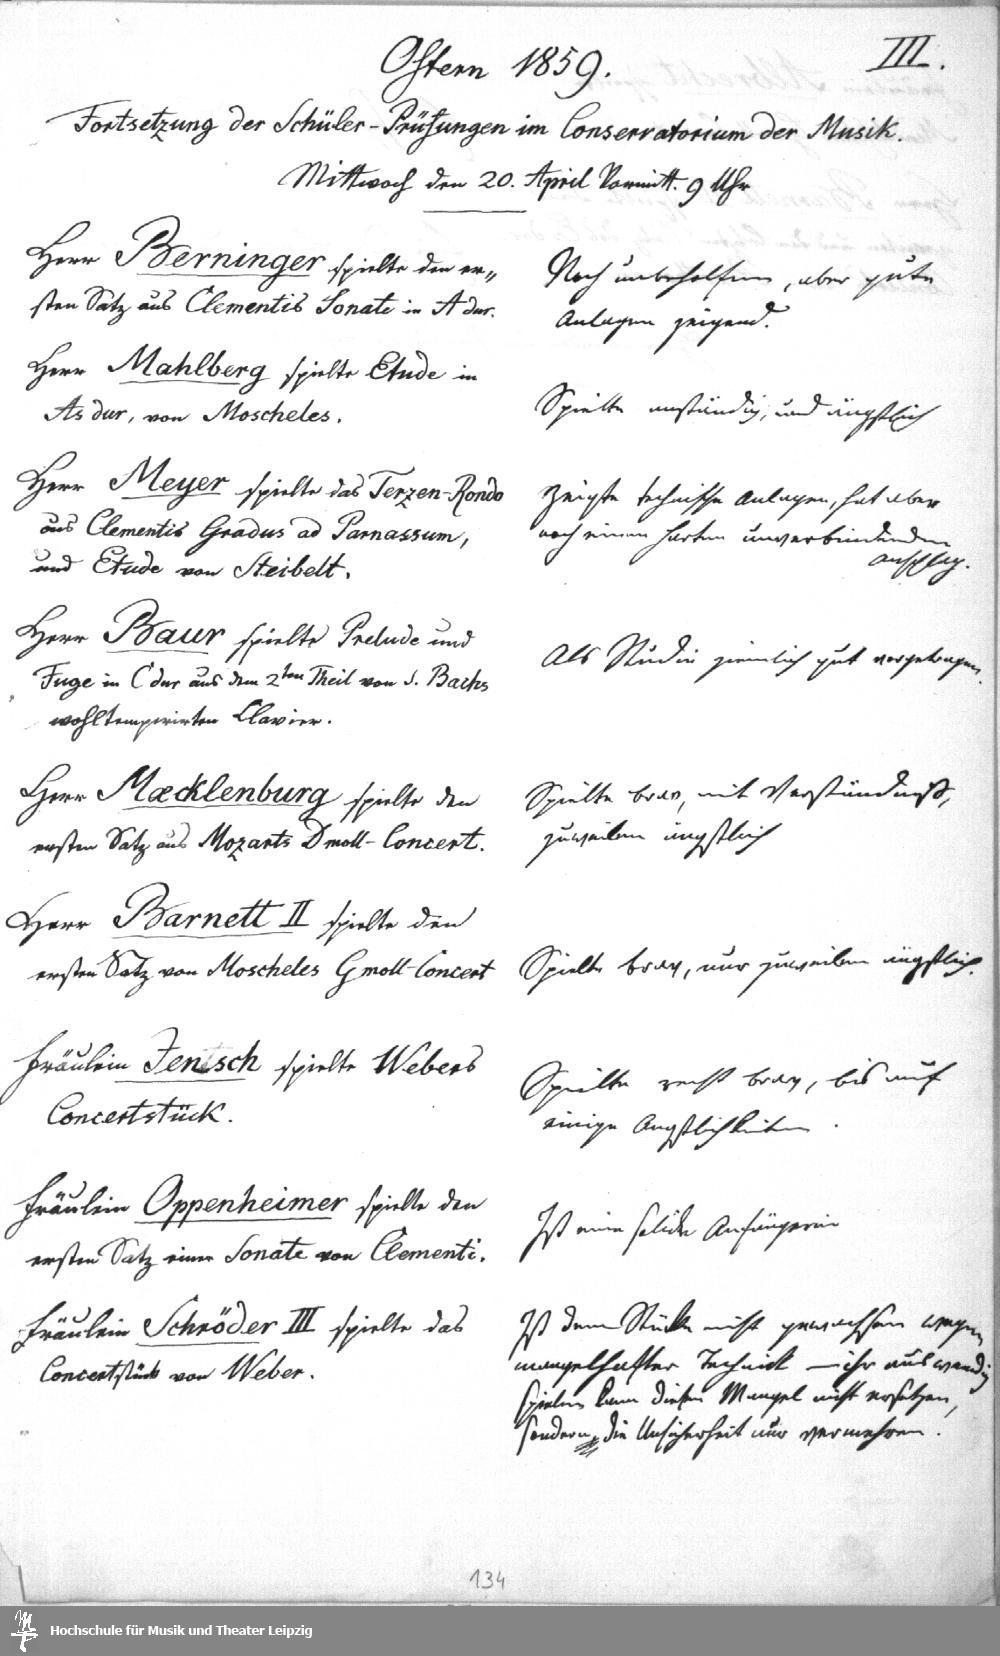 Ostern 1859.
III.
Fortsetzung der Schüler-Prüfungen im Conservatorium der Musik.
Mittwoch den 20. April Vormitt. 9 Uhr
Herr Berninger spielte den er-
sten Satz aus Clementis Sonate in A dur.
Noch unbeholfen, aber gute
Anlagen zeigend.
Herr Mahlberg spielte Etude in
As dur, von Moscheles.
Spielte anständig, und ängstlich
Herr Meyer spielte das Terzen-Rondo
aus Clementis Gradus ad Parnassum,
und Etude von Steibelt.
Zeigte technische Anlagen, hat aber
noch einen harten unverbindenden
Anschlag.
Herr Baur spielte Prelude und
Fuge in C dur aus dem 2ten Theil von S. Bachs
wohltemperirten Clavier.
Als Studie ziemlich gut vorgetragen.
Herr Mæcklenburg spielte den
ersten Satz aus Mozarts D moll-Concert.
Spielte brav, mit Verständniß,
zuweilen ängstlich
Herr Barnett II spielte den
ersten Satz von Moscheles G moll-Concert
Spielte brav, nur zuweilen ängstlich.
Fräulein Jentsch spielte Webers
Concertstück.
Spielte recht brav, bis auf
einige Angstlichkeiten.
Fräulein Oppenheimer spielte den
ersten Satz einer Sonate von Clementi.
Ist eine solide Anfängerin
Fräulein Schröder III spielte das
Concertstück von Weber.
Ist dem Stücke nicht gewachsen wegen
mangelhafter Technick – ihr auswendig
spielen kann diesen Mangel nicht ersetzen,
sondern die Unsicherheit nur vermehren.
134
Hochschule für Musik und Theater Leipzig